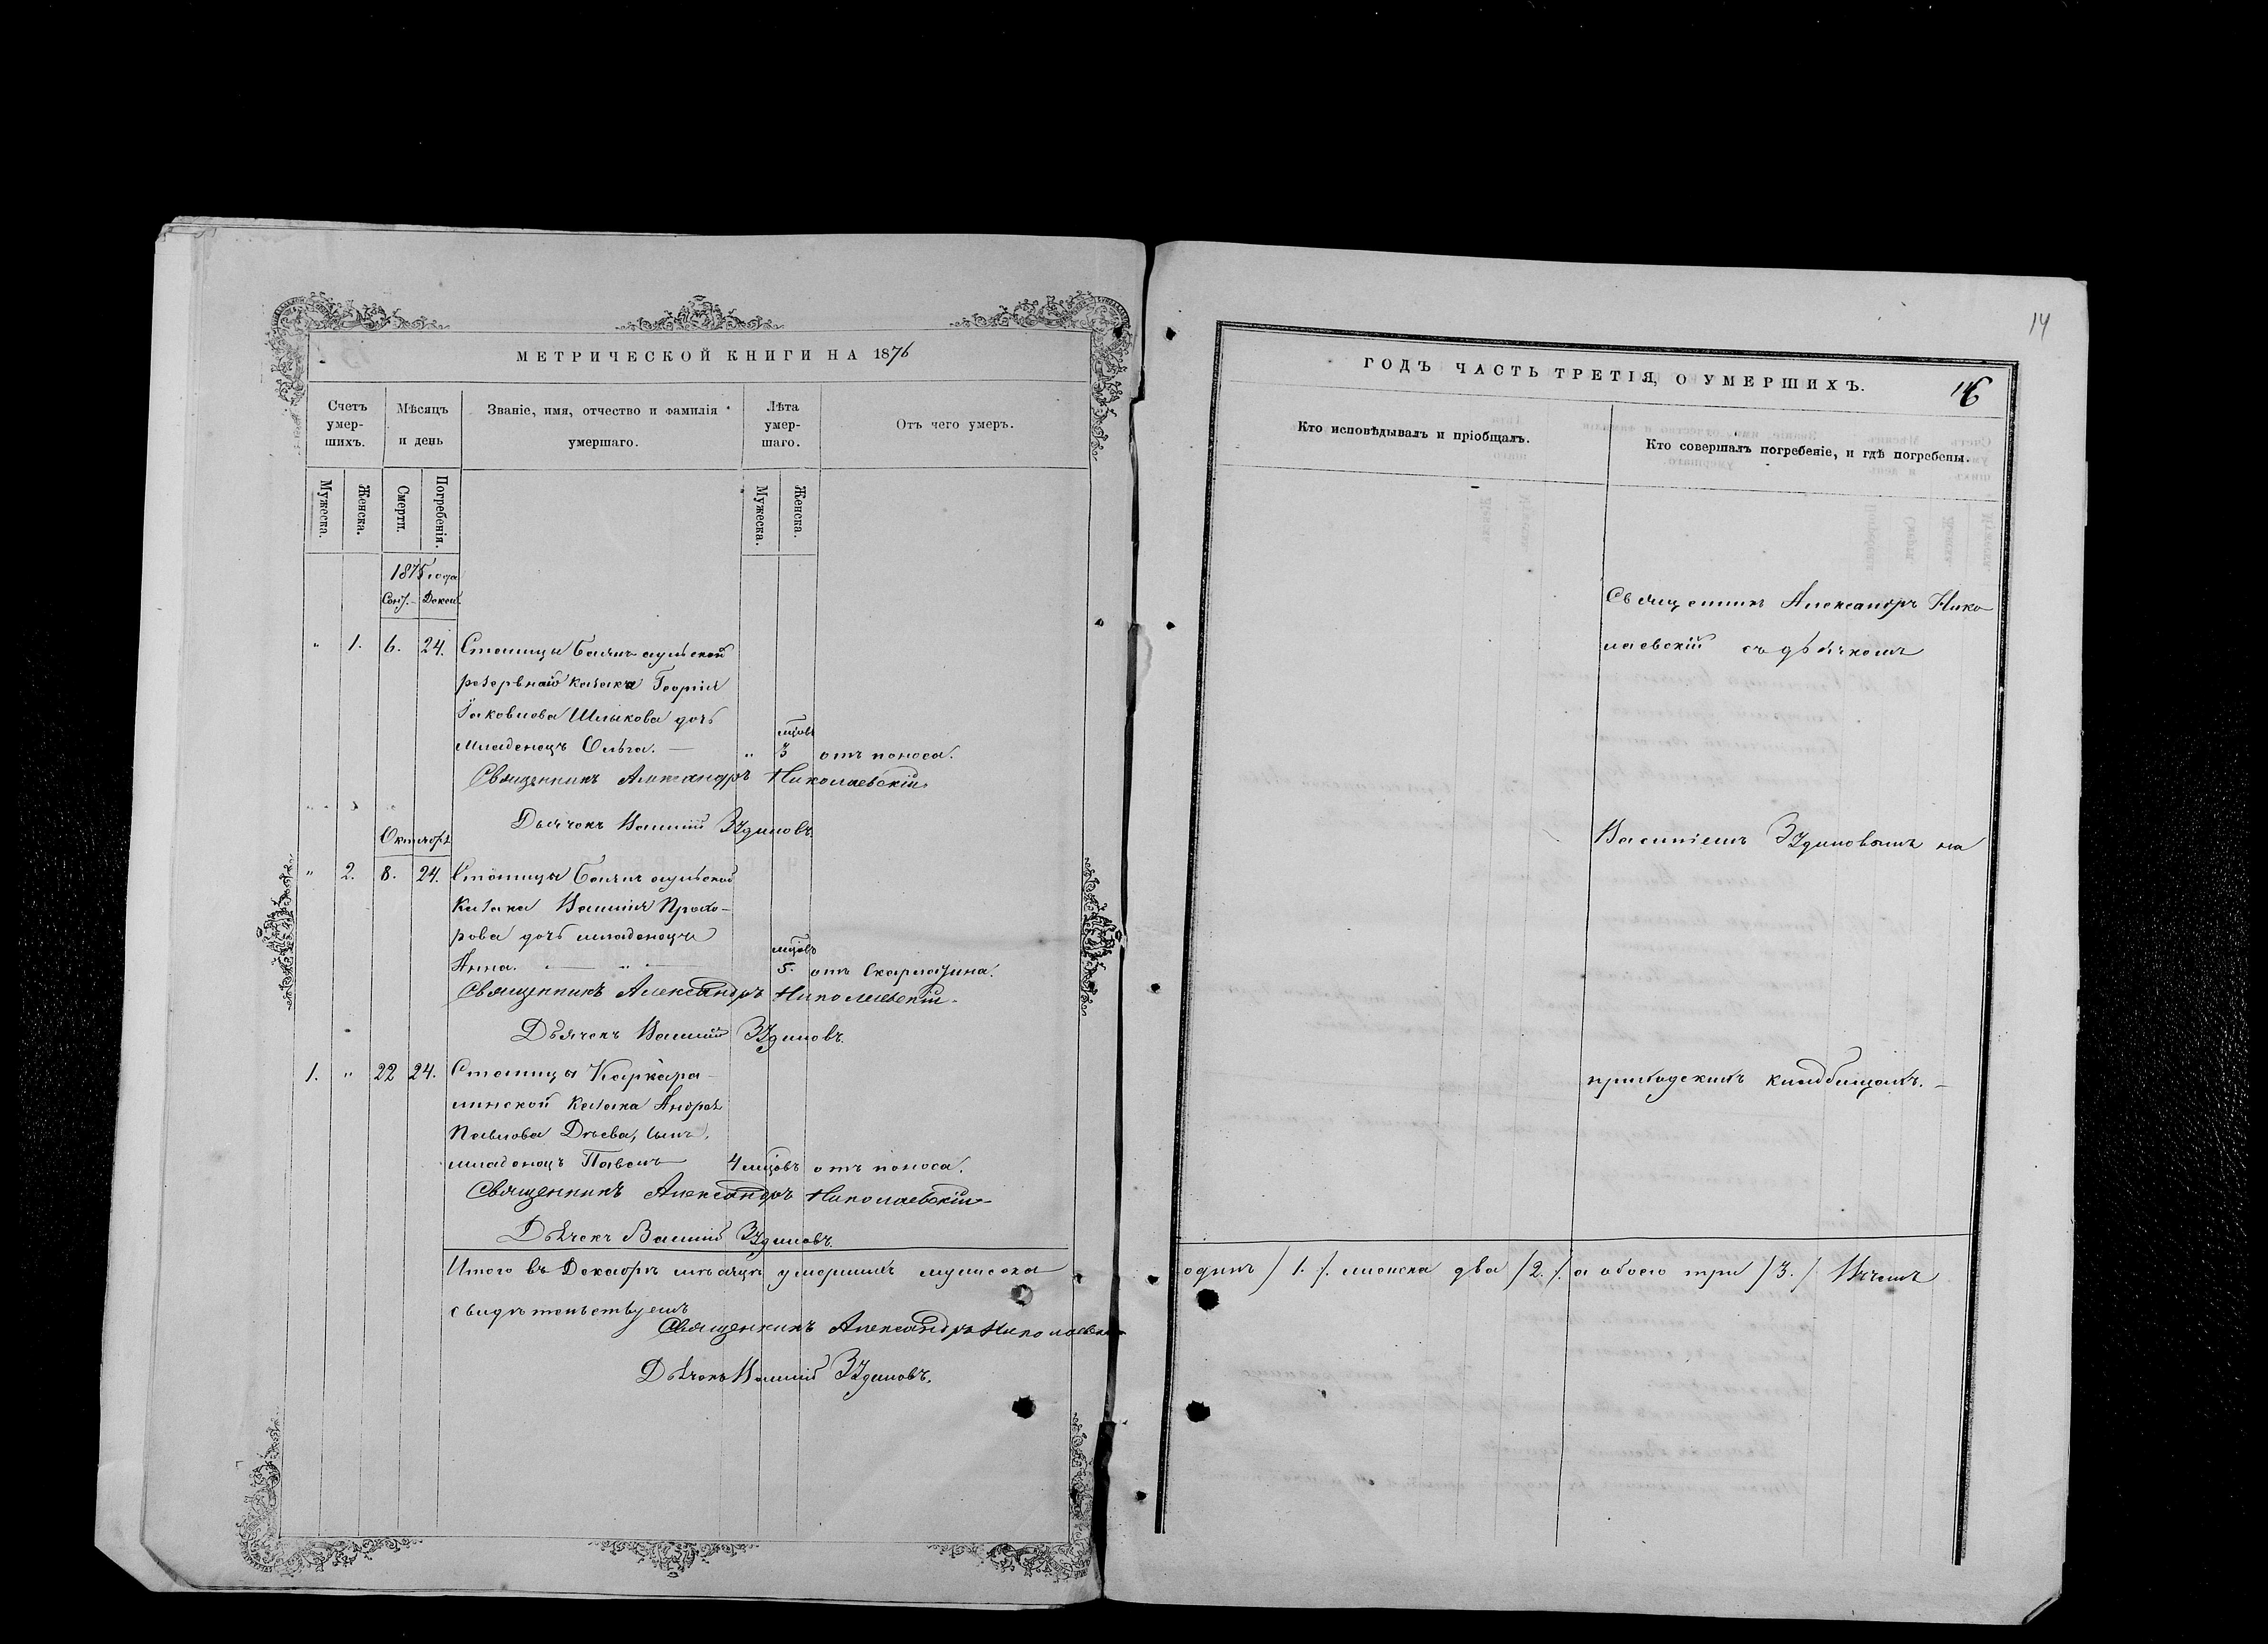 МЕТРИЧЕСКОЙ КНИГИ НА 1876
Счетъ умер-шихъ.
Мѣсяцъ и день
Званіе, имя, отчество и фамилія умершаго.
Лѣта умер-шаго.
Отъ чего умеръ.
Мужеска.
Женска.
Смерти.
Погребенія.
Мужеска.
Женска.
1875 года
Сент.- Декаб.
" 1. 6. 24. Станицы Баянъ аульской
резервнаго казака Георгія
Яковлова Шлыкова дочь
мцовъ
младенецъ Ольга. — " 3 отъ поноса.
Священникъ Александръ Николаевскій
Дьячекъ Василій
Октября
" 2. 8. 24. Станицы Баянъ аульской
казака Василія Прохо-
рова дочь младенецъ
мцовъ
Анна. 5. отъ Скарлатина.
Священникъ Александръ Николаевскій.
Дьячекъ Василій
1. " 22 24. Станицы Каркара-
линской казака Андрея
Павлова сынъ,
младенецъ Павелъ 4 мцовъ отъ поноса.
Священникъ Александръ Николаевскій
Дьячекъ Василій
Итого въ Декабрѣ мѣсяцѣ умершихъ мужеска
свидѣтельствуемъ
Священникъ Александръ Николаевскій
Дьячекъ Василій
14
ГОДЪ ЧАСТЬ ТРЕТІЯ, О УМЕРШИХЪ.
Кто исповѣдывалъ и пріобщалъ.
Кто совершалъ погребеніе, и гдѣ погребены.
Священникъ Александръ Нико-
лаевскій съ дьячкомъ
Василіемъ на
приходскимъ кладбищахъ. —
одинъ /1./. женска два /2./. а обоего три /3./